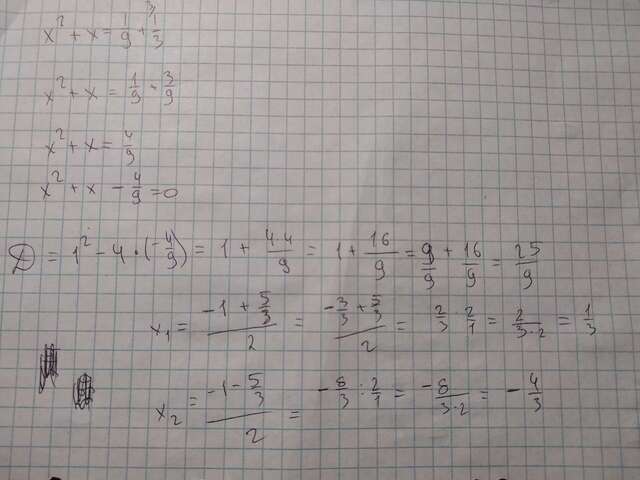 x² + x = 1/9 + 1/3
x² + x = 1/9 + 3/9
x² + x = 4/9
x² + x - 4/9 = 0
D = 1² - 4 · (-4/9) = 1 + 4·4/9 = 1 + 16/9 = 9/9 + 16/9 = 25/9
x₁ = (-1 + 5/3)/2 = (-3/3 + 5/3)/2 = 2/3 : 2/1 = 2/(3·2) = 1/3
x₂ = (-1 - 5/3)/2 = -8/3 : 2/1 = -8/(3·2) = -4/3